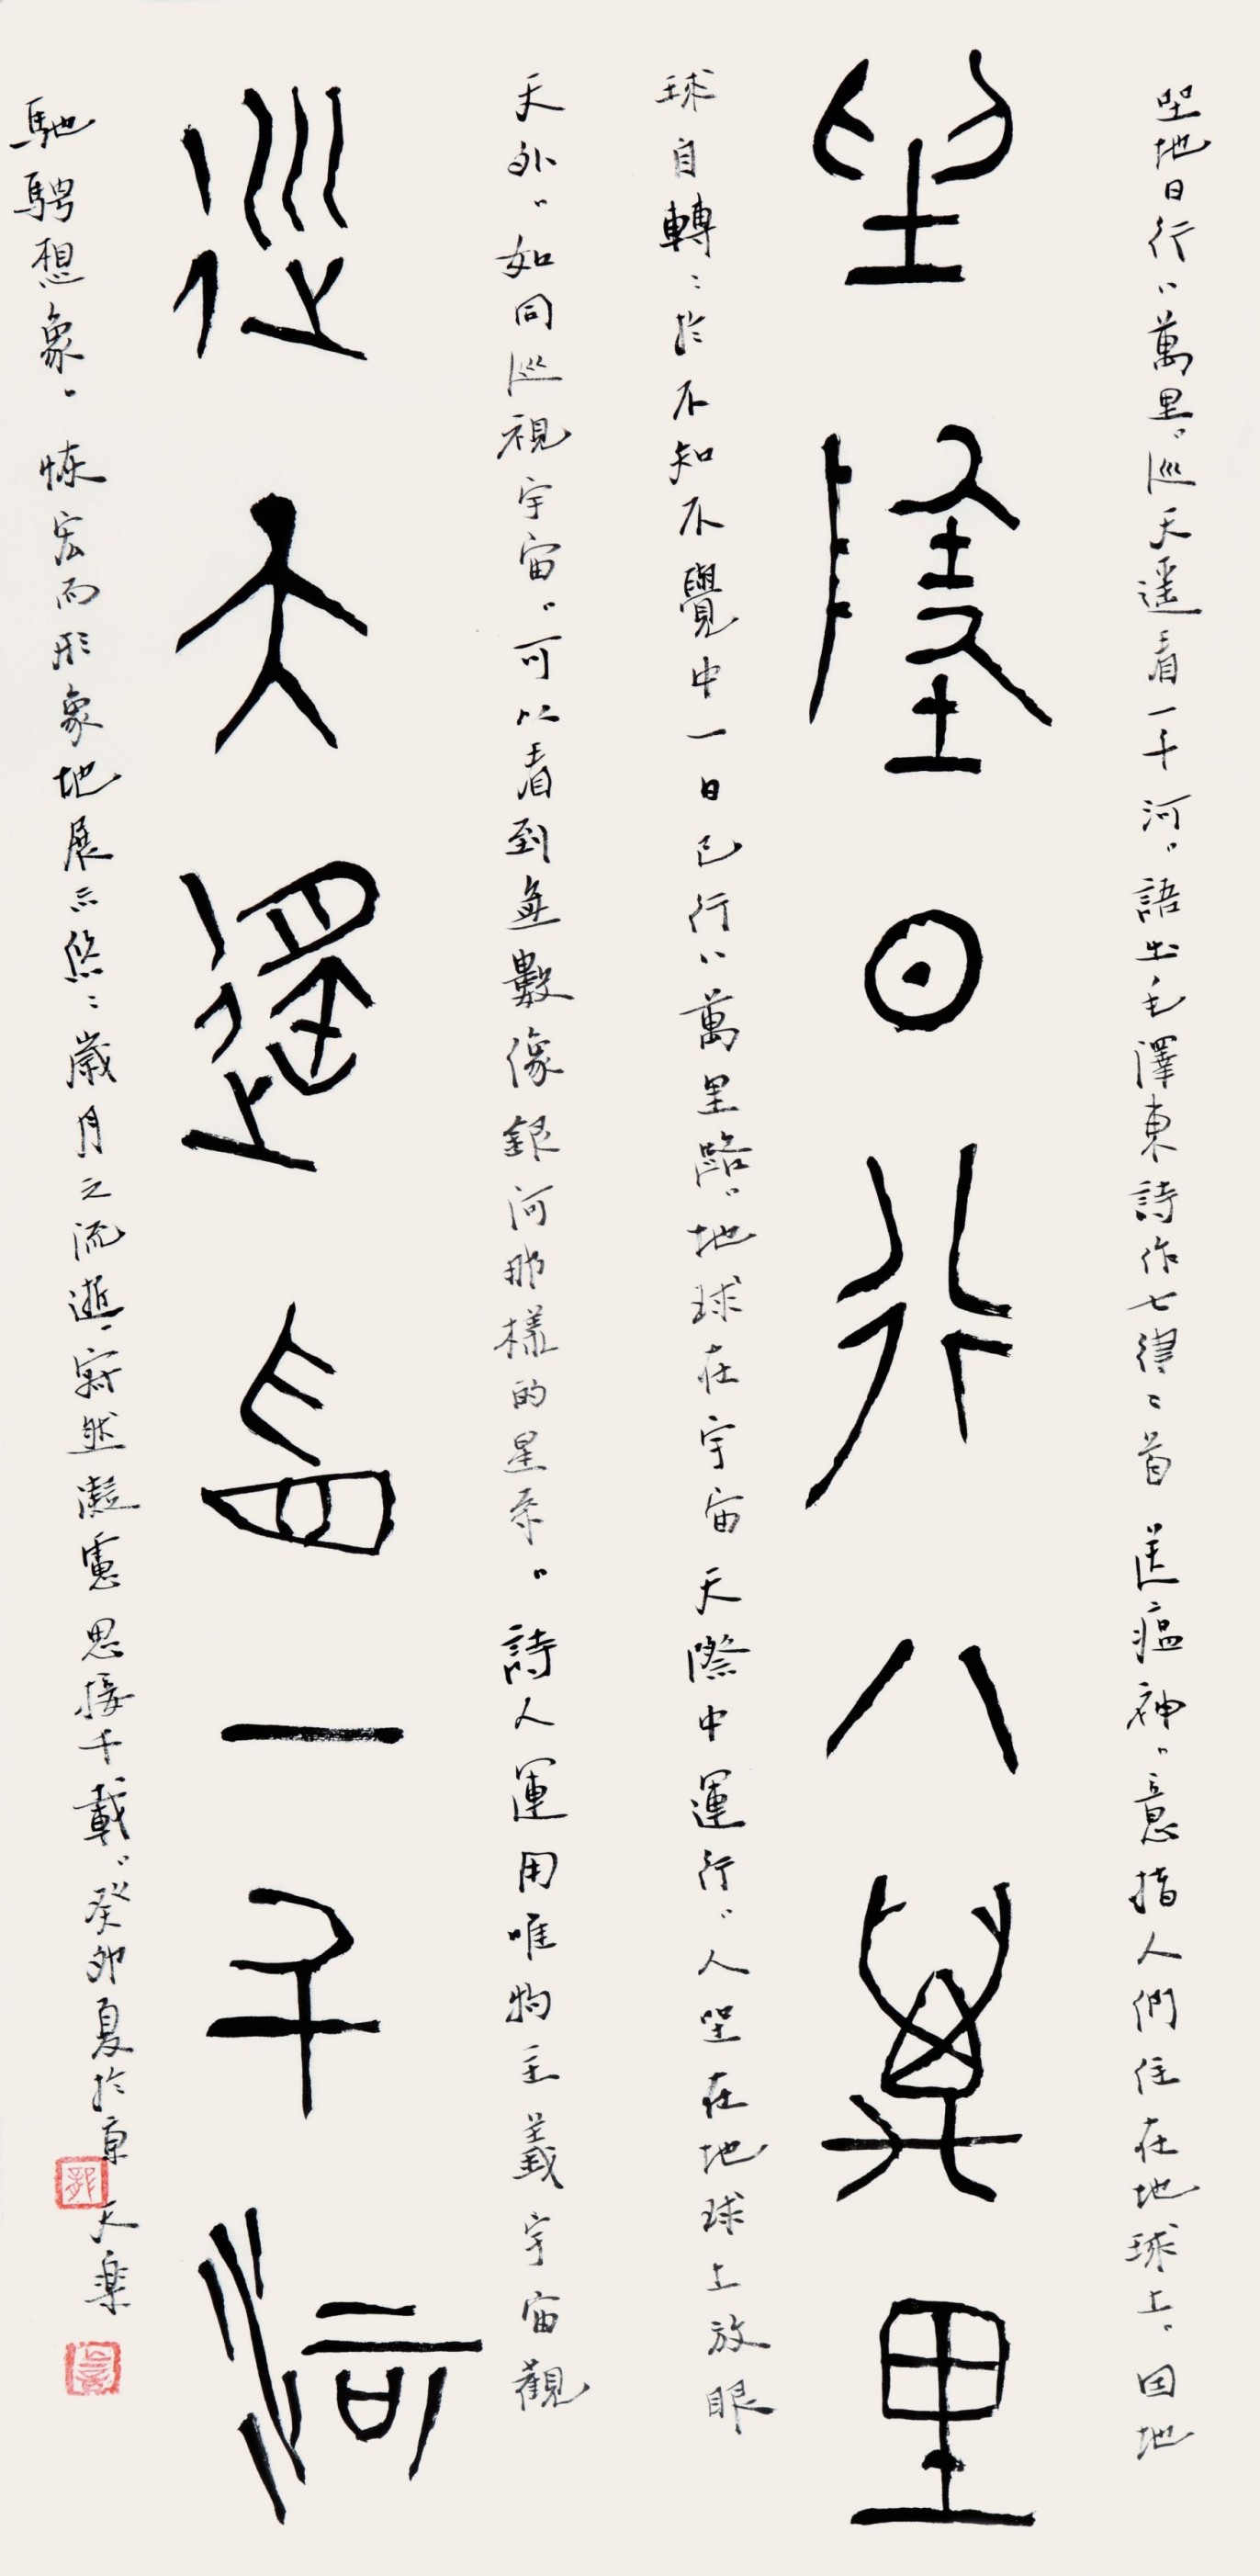 坐地日行八萬里巡天遥看一千河語出毛澤東詩作七律二首送瘟神意指人們住在地球上因地
坐地日行八萬里
球自轉於不知不覺中一日已行八萬里路地球在宇宙天際中運行人坐在地球上放眼
天外如同巡視宇宙可以看到無數像銀河那樣的星系詩人運用唯物主義宇宙觀
巡天遥看一千河
馳騁想象恢宏而形象地展示悠々歲月之流逝寂然凝慮思接千載癸卯夏於京 大樂